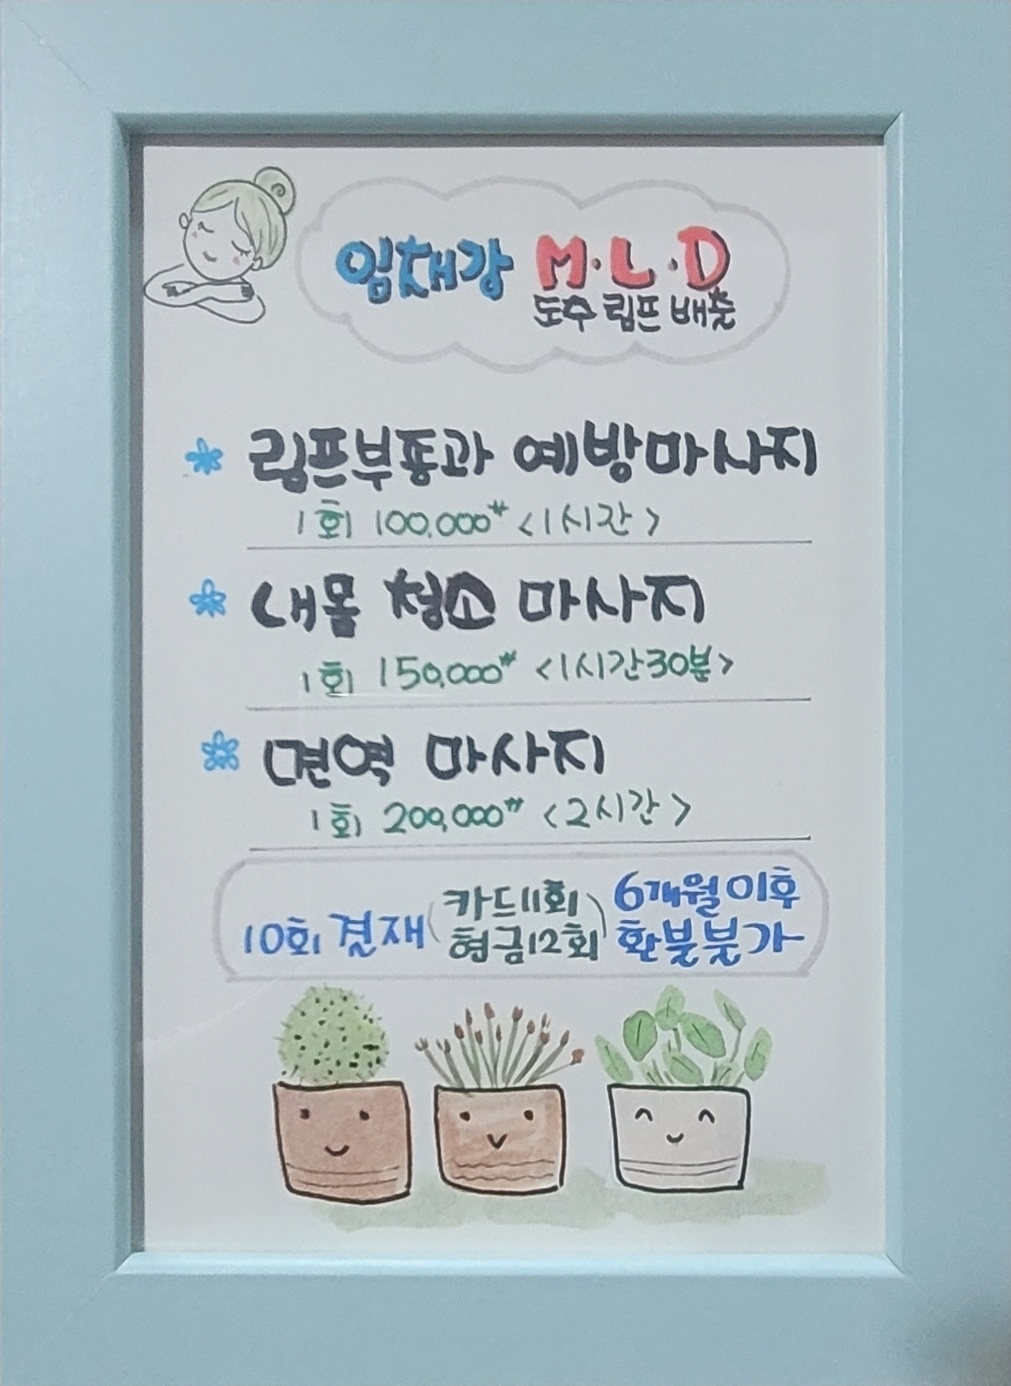 임채강 M·L·D
도수 림프 배출
* 림프부종과 예방마사지
1회 100,000₩ <1시간>
* 내몸 청소 마사지
1회 150,000₩ <1시간30분>
* 면역 마사지
1회 200,000₩ <2시간>
10회 결재 (카드11회 현금12회) 6개월이후 환불불가